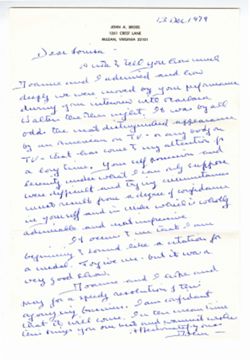 JOHN A. BROSS
1351 CREST LANE
McLEAN, VIRGINIA 22101
13 Dec 1979
Dear Louisa -
I write to tell you how much
Joanne and I admired and how
deeply we were moved by your performance
during your interview with Barbara
Walters the other night. It was by all
odds the most distinguished appearance
by an American on TV - or any body on
TV - that has come to my attention for
a long time. Your self possession and
serenity under what I can only suppose
were difficult and trying circumstances
must result from a degree of confidence
in yourself and in which is wholly
admirable and most impressive
It occurs to me that I am
beginning to sound like a citation for
a medal. Forgive me. but it was a
very good show.
Joanne and I hope and
pray for a speedy resolution of this
agonizing business. I am confident
that it will come. In the mean time